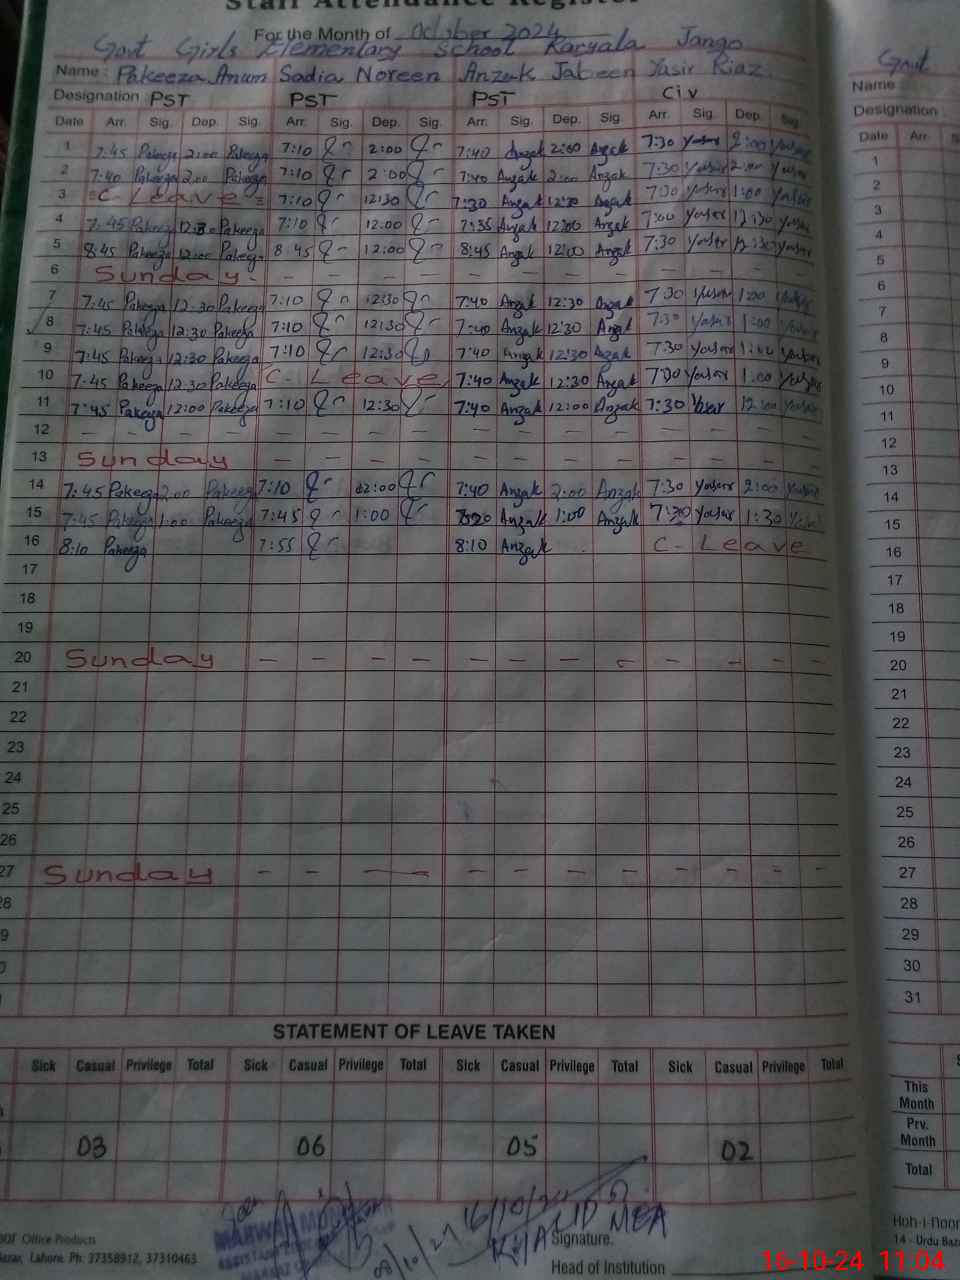 Staff Attendance Register
For the Month of October 2024
Govt Girls Elementary School Karyala Jango
Name : Pakeeza Anum Sadia Noreen Anzak Jabeen Yasir Riaz
Designation : PST PST PST Civ
Date Arr. Sig. Dep. Sig. Arr. Sig. Dep. Sig. Arr. Sig. Dep. Sig Arr. Sig. Dep. Sig
1 7:45 Pakeeza 2:00 Pakeeza 7:10 2:00 7:40 Anzak 2:00 Anzak 7:30 Yasir 2:00 Yasir
2 7:40 Pakeeza 2:00 Pakeeza 7:10 2:00 7:40 Anzak 2:00 Anzak 7:30 Yasir 2:00 Yasir
3 C Leave 7:10 12:30 7:30 Anzak 12:30 Anzak 7:30 Yasir 1:00 Yasir
4 7:45 Pakeeza 12:30 Pakeeza 7:10 12:00 7:35 Anzak 12:00 Anzak 7:00 Yasir 12:30 Yasir
5 8:45 Pakeeza 12:00 Pakeeza 8:45 12:00 8:45 Anzak 12:00 Anzak 7:30 Yasir 12:30 Yasir
6 Sunday - - - - - - - - - - - -
7 7:45 Pakeeza 12:30 Pakeeza 7:10 12:30 7:40 Anzak 12:30 Anzak 7:30 Yasir 1:00 Yasir
8 7:45 Pakeeza 12:30 Pakeeza 7:10 12:30 7:40 Anzak 12:30 Anzak 7:30 Yasir 1:00 Yasir
9 7:45 Pakeeza 12:30 Pakeeza 7:10 12:30 7:40 Anzak 12:30 Anzak 7:30 Yasir 1:00 Yasir
10 7:45 Pakeeza 12:30 Pakeeza C. Leave 7:40 Anzak 12:30 Anzak 7:30 Yasir 1:00 Yasir
11 7:45 Pakeeza 12:00 Pakeeza 7:10 12:30 7:40 Anzak 12:00 Anzak 7:30 Yasir 12:00 Yasir
12 - - - - - - - - - - - - - - - -
13 Sunday - - - - - - - - - - - -
14 7:45 Pakeeza 2:00 Pakeeza 7:10 2:00 7:40 Anzak 2:00 Anzak 7:30 Yasir 2:00 Yasir
15 7:45 Pakeeza 1:00 Pakeeza 7:45 1:00 Anzak 1:00 Anzak 7:30 Yasir 1:30 Yasir
16 8:10 Pakeeza 7:55 8:10 Anzak C- Leave
17
18
19
20 Sunday - - - - - - - - - - - -
21
22
23
24
25
26
27 Sunday - - - - - - - - - - -
28
9
STATEMENT OF LEAVE TAKEN
Sick Casual Privilege Total Sick Casual Privilege Total Sick Casual Privilege Total Sick Casual Privilege Total
03 06 05 02
16/10/24
KHALID MEA
Office Products
Lahore. Ph: 37358912, 37310463
Signature.
Head of Institution
Govt
Name :
Designation
Date Arr. Sig
1
2
3
4
5
6
7
8
9
10
11
12
13
14
15
16
17
18
19
20
21
22
23
24
25
26
27
28
29
30
31
This Month
Prv. Month
Total
14 - Urdu Baza
16-10-24 11:04